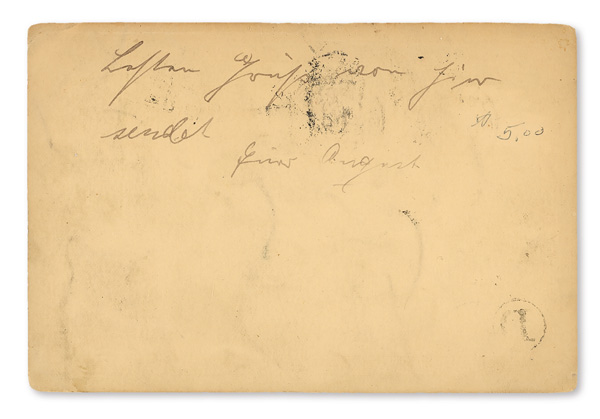 Besten Gruß von hier
sendet
Euer August
5.00
1